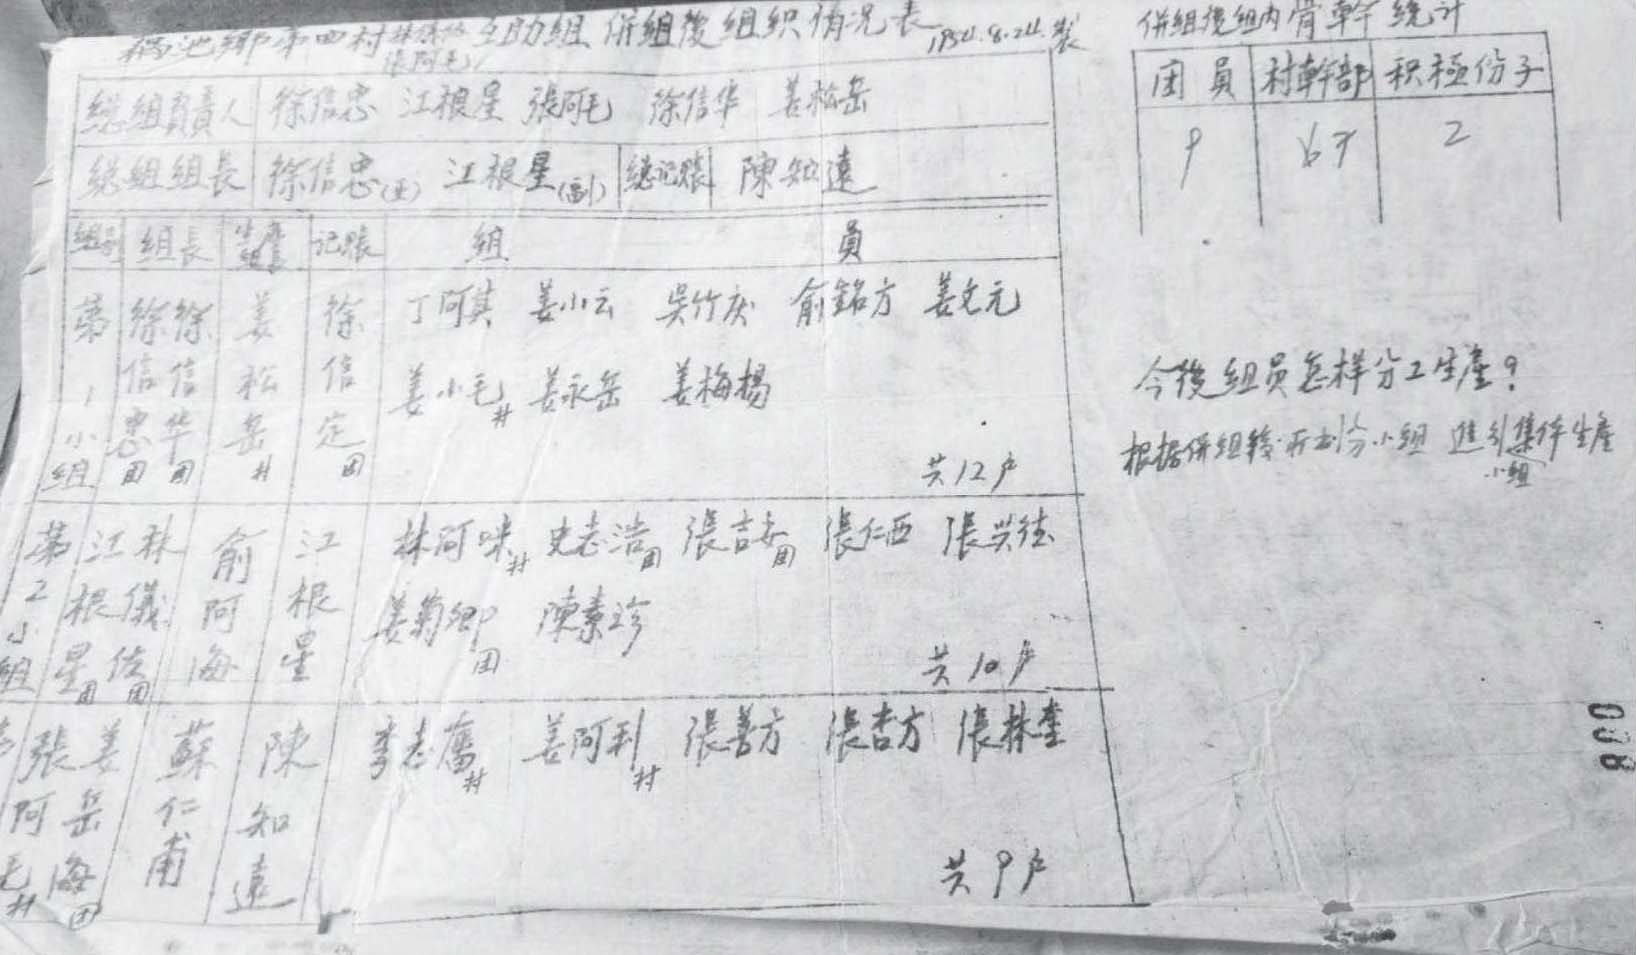 池鄉第四村 互助組 併組後組织情况表 1954.8.24.製
張阿毛
總組負責人 徐信忠 江根星 張阿毛 徐信华 姜松岳
總組組長 徐信忠(正) 江根星(副) 總记賬 陳知遠
組別 組長 生產組長 记賬 組員
第1小組 徐信忠团 徐信华团 姜松岳村 徐信定团 丁阿其 姜小云 吳竹庆 俞銘方 姜文元
姜小毛村 姜永岳 姜梅楊
共12户
第2小組 江根星团 林儀佐团 俞阿海 江根星 林阿味村 史志浩团 張吉安团 張仁西 張兴德
姜菊卿团 陳素珍
共10户
張阿毛村 姜岳海团 蘇仁甫 陳知遠 李志富村 姜阿利村 張善方 張吉方 張林奎
共9户
併組後組内骨幹統计
团員 村幹部 积極份子
9 67 2
今後組员怎样分工生產?
根据併組後所划分小組 進引集体生產
小組
008